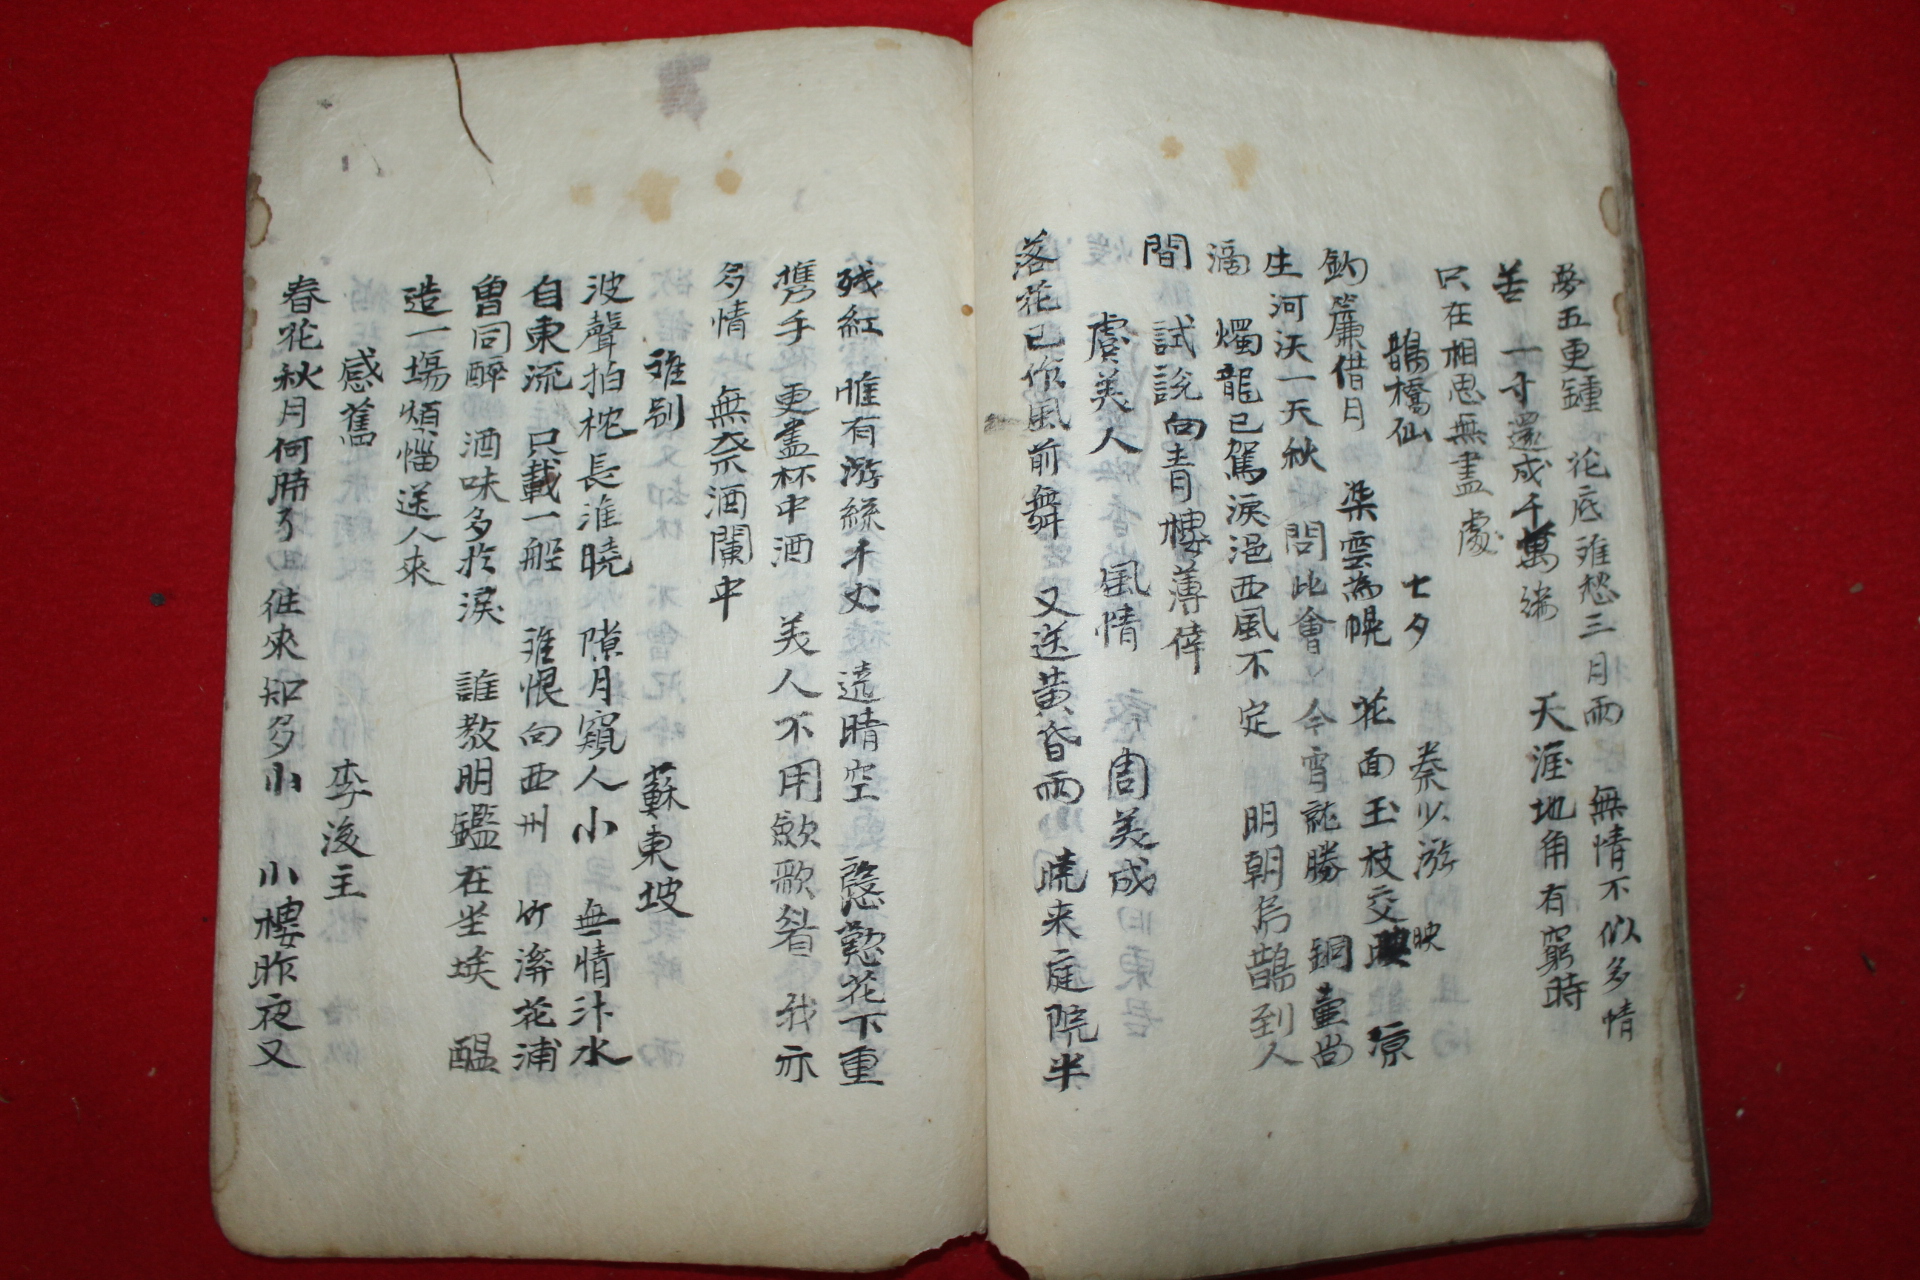 夢五更鍾 花底离愁三月雨 無情不似多情
苦 一寸還成千萬端 天涯地角有窮時
只在相思無盡處
鵲橋仙 七夕 秦少游
鈎簾借月 染雲為幌 花面玉枝交映 映 凉
生河汉一天秋 問比會今宵誰勝 銅壺尚
滴 燭龍已駕淚浥西風不定 明朝烏鵲到人
間 試說向青樓薄倖
虞美人 風情 周美成
落花已作風前舞 又送黄昏雨 曉来庭院半
残紅 惟有游絲千丈 遶晴空 慇懃花下重
携手 更盡杯中酒 美人不用歛歌眉 我亦
多情 無奈酒闌中
离别 蘇東坡
波聲拍枕長淮曉 隙月窺人小 無情汴水
自東流 只載一船 离恨向西州 竹溪花浦
曽同醉 酒味多於淚 誰教明鑑在坐埃 醖
造一塲煩惱送人來
感舊 李後主
春花秋月何時了 徃來知多小 小樓昨夜又